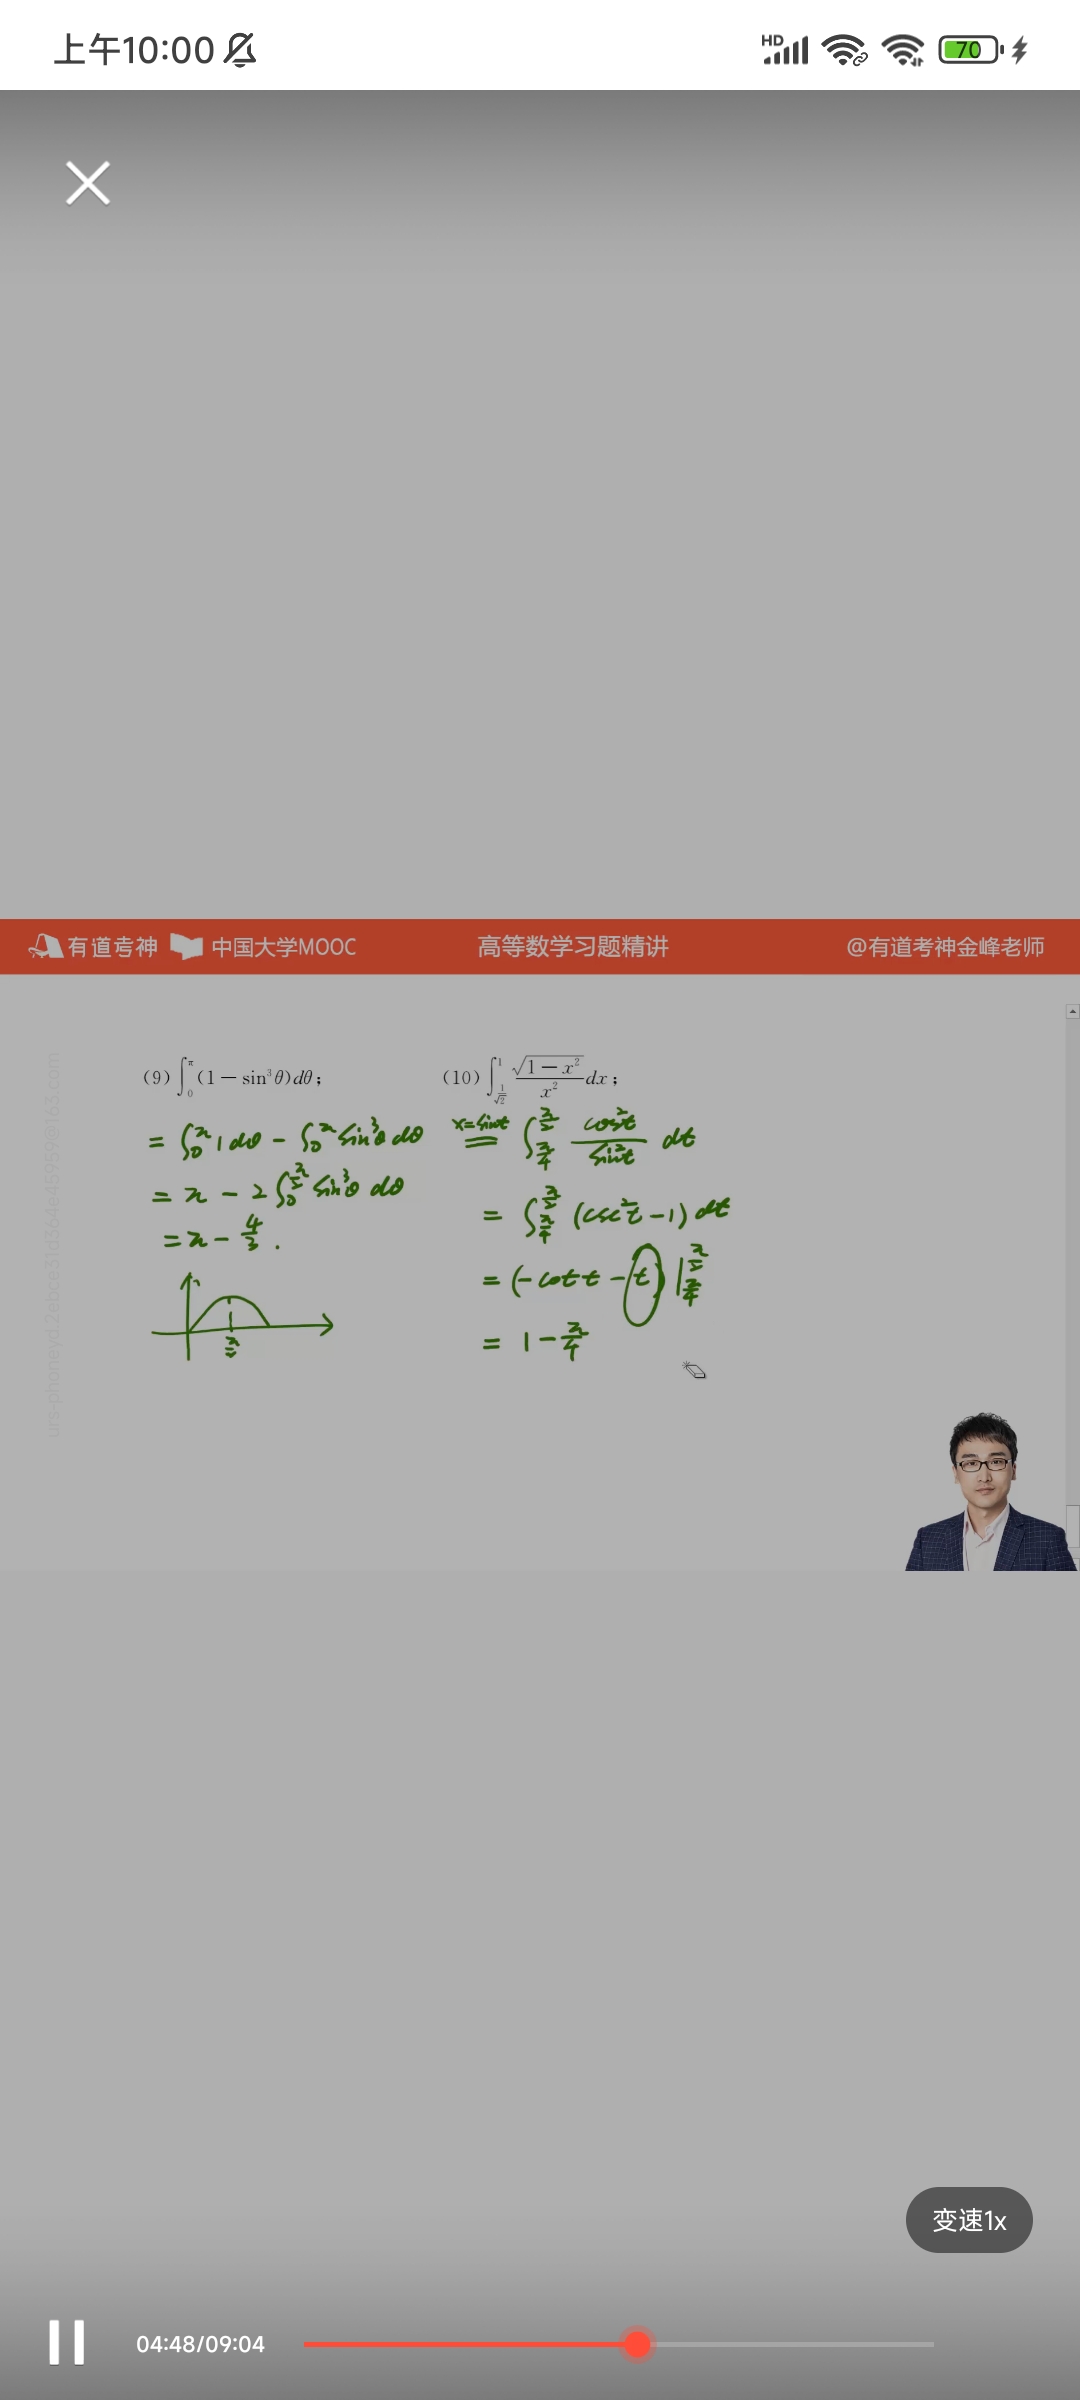 上午10:00
HD
70
有道考神 中国大学MOOC 高等数学习题精讲 @有道考神金峰老师
(9) ∫₀^π (1 − sin³θ)dθ;
= ∫₀^π 1 dθ − ∫₀^π sin³θ dθ
= π − 2∫₀^(π/2) sin³θ dθ
= π − 4/3 .
π/2
(10) ∫_(1/√2)^1 √(1 − x²)/x² dx;
x=sint ∫_(π/4)^(π/2) cos²t/sin²t dt
= ∫_(π/4)^(π/2) (csc²t − 1) dt
= (−cot t − t) |_(π/4)^(π/2)
= 1 − π/4
变速1x
04:48/09:04